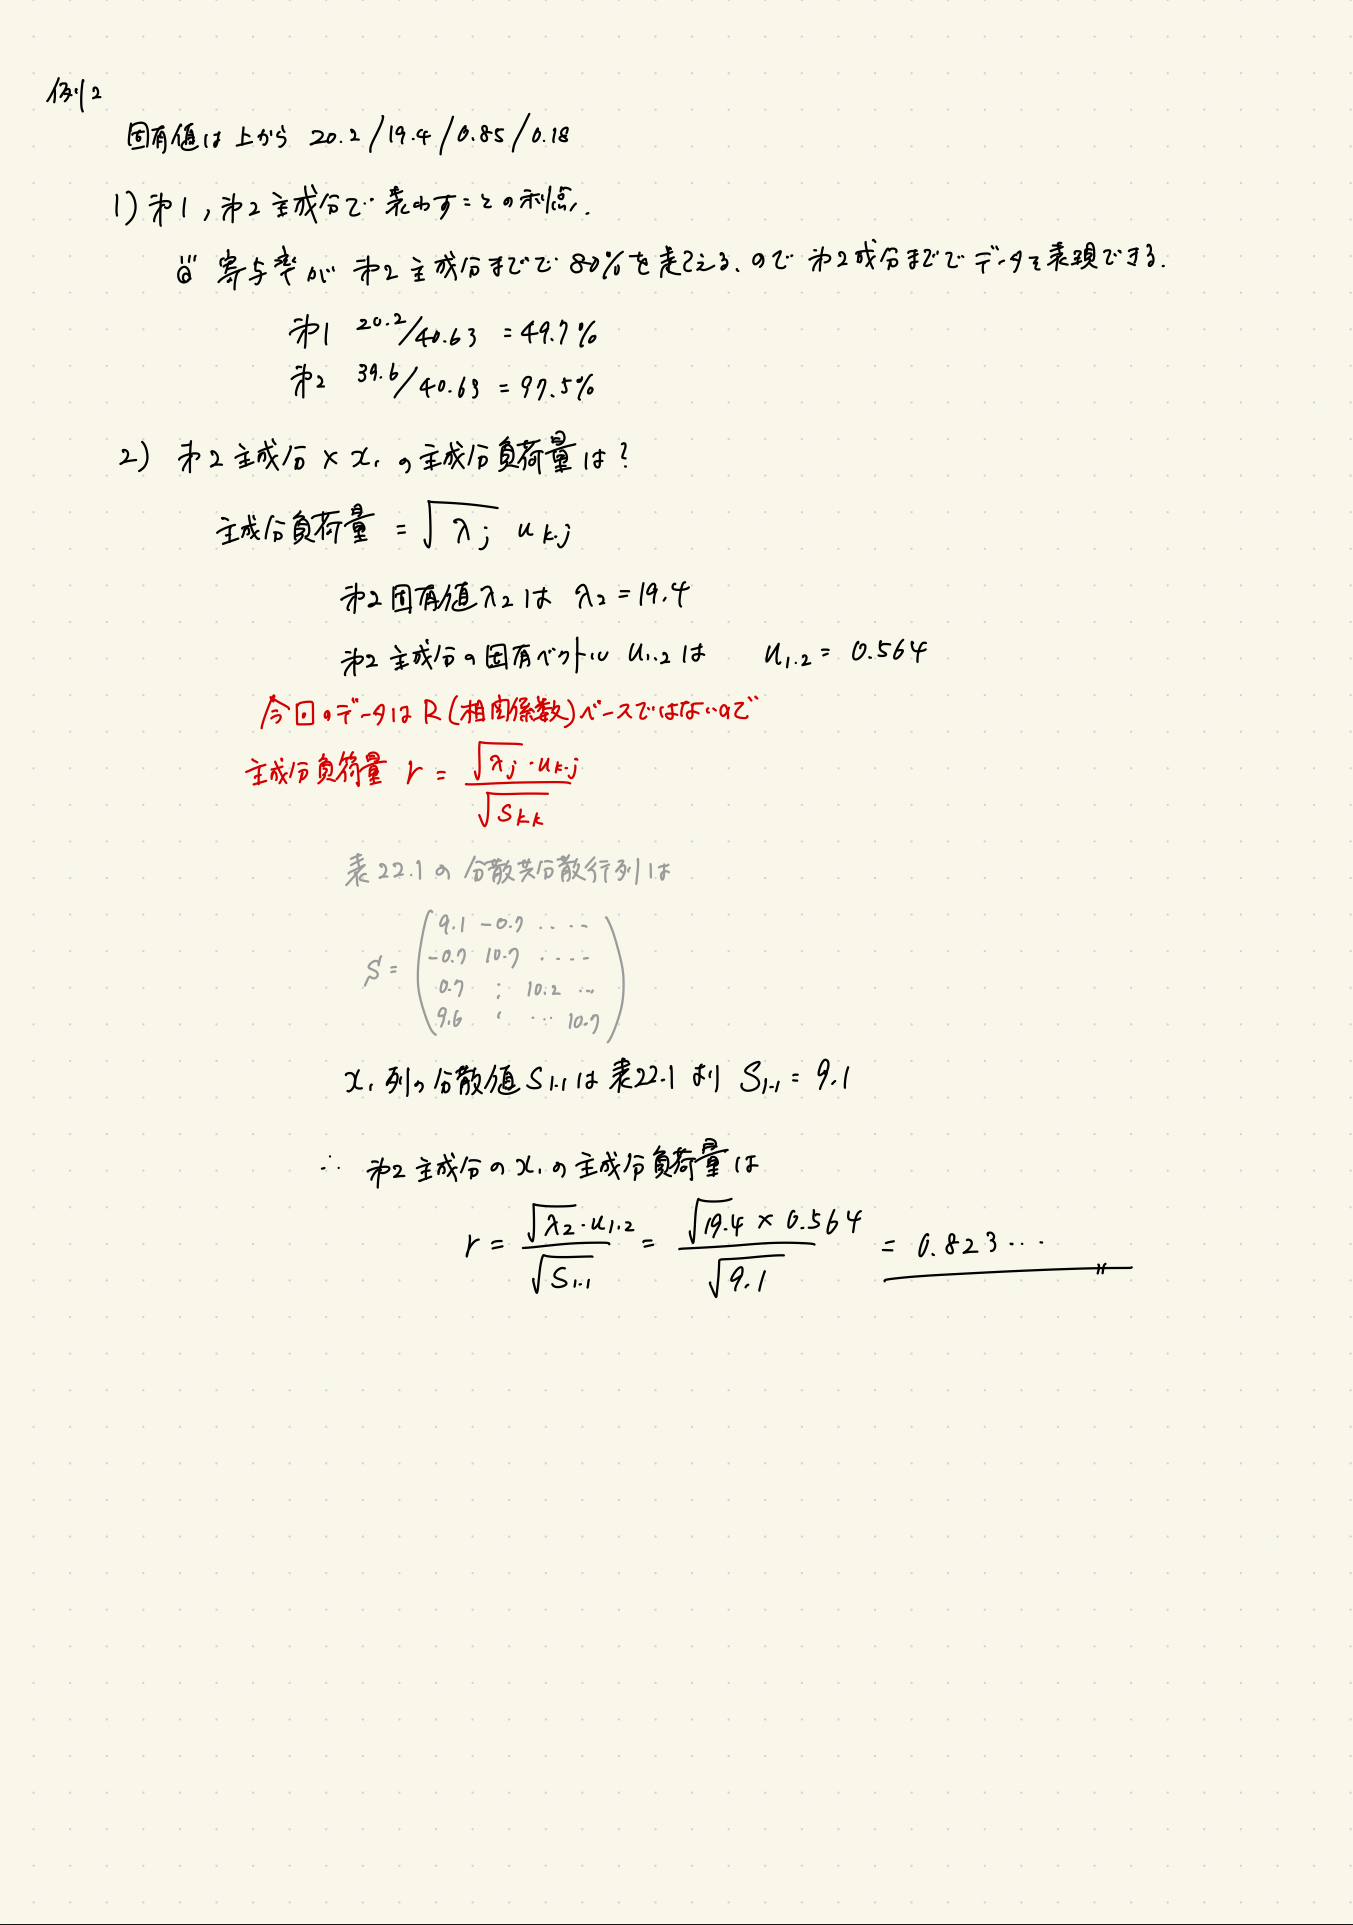 例2
固有値は上から 20.2/19.4/0.85/0.18
1) 第1,第2主成分で表わすことの利点.
寄与率が第2主成分までで80%を超える、ので第2成分まででデータを表現できる.
第1 20.2/40.63 = 49.7%
第2 39.6/40.63 = 97.5%
2) 第2主成分 × x₁ の主成分負荷量は?
主成分負荷量 = √λj uk.j
第2固有値λ₂は λ₂ = 19.4
第2主成分の固有ベクトル u₁.₂は u₁.₂ = 0.564
今回のデータはR(相関係数)ベースではないので
主成分負荷量 r = √λj・uk.j / √Skk
表22.1の分散共分散行列は
S = (9.1 -0.7 ‥‥
-0.7 10.7 ‥‥
0.7 : 10.2 ‥
9.6 ‥ 10.7)
x₁列の分散値S₁.₁は表22.1より S₁.₁ = 9.1
∴ 第2主成分のx₁の主成分負荷量は
r = √λ₂・u₁.₂ / √S₁.₁ = √19.4 × 0.564 / √9.1 = 0.823…